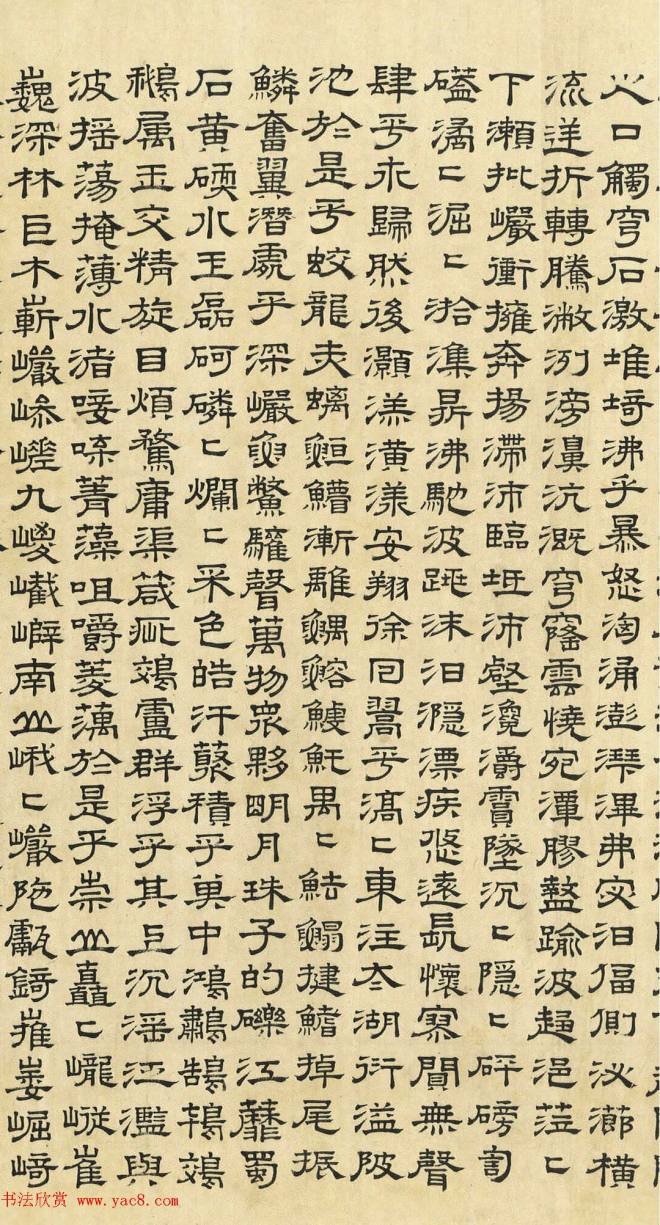 之口觸穹石激堆埼沸乎暴怒洶涌澎湃渾弗宓汩偪側泌瀄橫
流逆折轉騰潎洌滂濞沆溉穹窿雲橈宛潬膠盭踰波趨浥蒞〻
下瀨批巖衝擁奔揚滯沛臨坻沛壑瀺灂霣墜沉〻隱〻砰磅訇
礚潏〻淈〻湁潗鼎沸馳波跳沫汩㶏漂疾悠遠長懷寂閴無聲
肆乎永歸然後灝溔潢漾安翔徐回翯乎滈〻東注太湖衍溢陂
池於是乎蛟龍赤螭䱎䲛漸離鰅鰫鰬魠禺〻魼鰨揵鰭掉尾振
鱗奮翼潛處乎深巖魚鱉讙聲萬物眾夥明月珠子的礫江靡蜀
石黃碝水玉磊砢磷〻爛〻采色皓汗藂積乎其中鴻鷫鵠鴇鴐
鵝属玉交精旋目煩鶩庸渠箴疵鵁盧群浮乎其上沉淫泛濫與
波搖蕩掩薄水渚唼喋菁藻咀嚼菱藕於是乎崇山矗〻巃嵷崔
巍深林巨木嶄巖嵾嵳九嵕嶻嶭南山峨〻巖陁甗錡嶊崣崛崎
书法欣赏 www.yac8.com